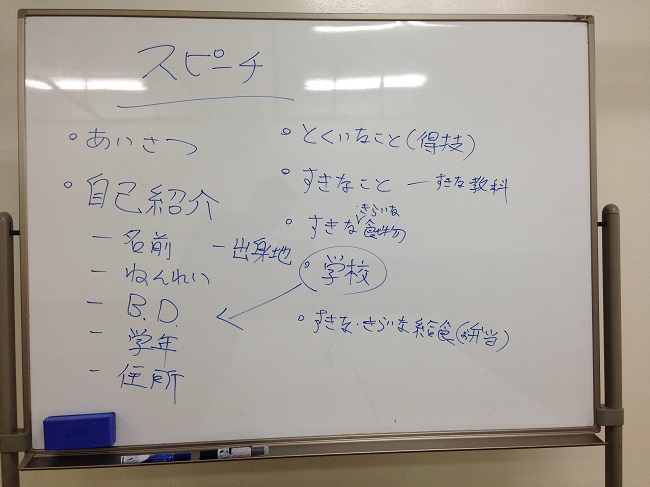 スピーチ
○ あいさつ
○ 自己紹介
― 名前
― 出身地
― ねんれい
― B.D.
― 学年
― 住所
○ とくいなこと(得技)
○ すきなこと ― すきな教科
○ すきな・きらいな食物
○ 学校
○ すきな・きらいな給食(お弁当)